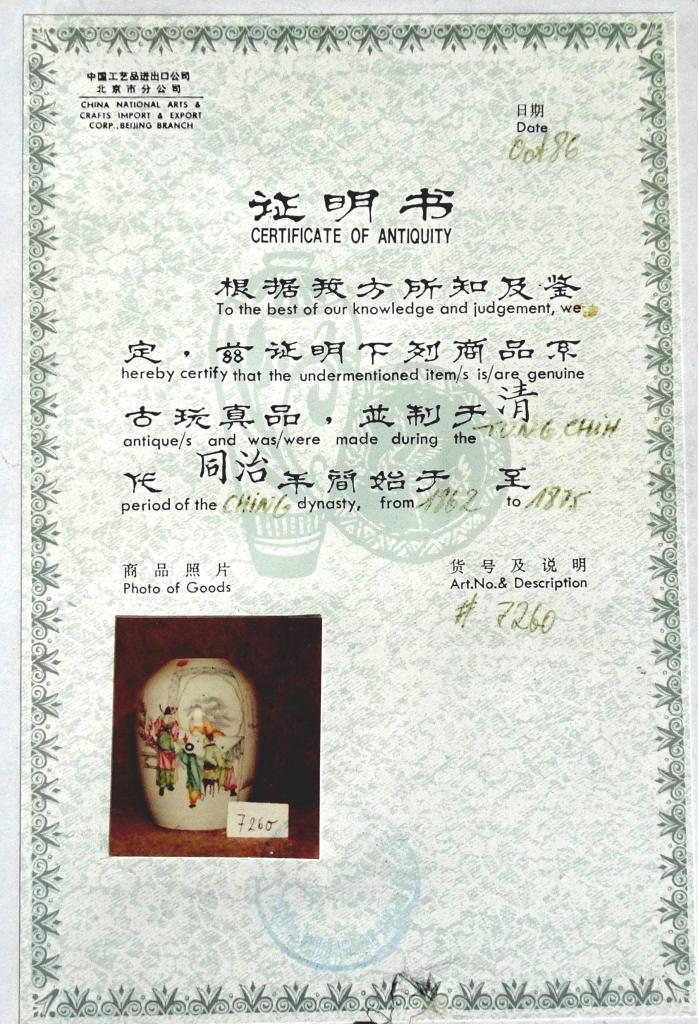 中国工艺品进出口公司
北京市分公司
CHINA NATIONAL ARTS &
CRAFTS IMPORT & EXPORT
CORP., BEIJING BRANCH
日期
Date
Oct 86
证明书
CERTIFICATE OF ANTIQUITY
根据我方所知及鉴
To the best of our knowledge and judgement, we
定，兹证明下列商品系
hereby certify that the undermentioned item/s is/are genuine
古玩真品，並制于清
antique/s and was/were made during the TUNG CHIH
代同治年间始于 至
period of the CHING dynasty, from 1862 to 1875
商品照片
Photo of Goods
货号及说明
Art.No.& Description
# 7260
7260